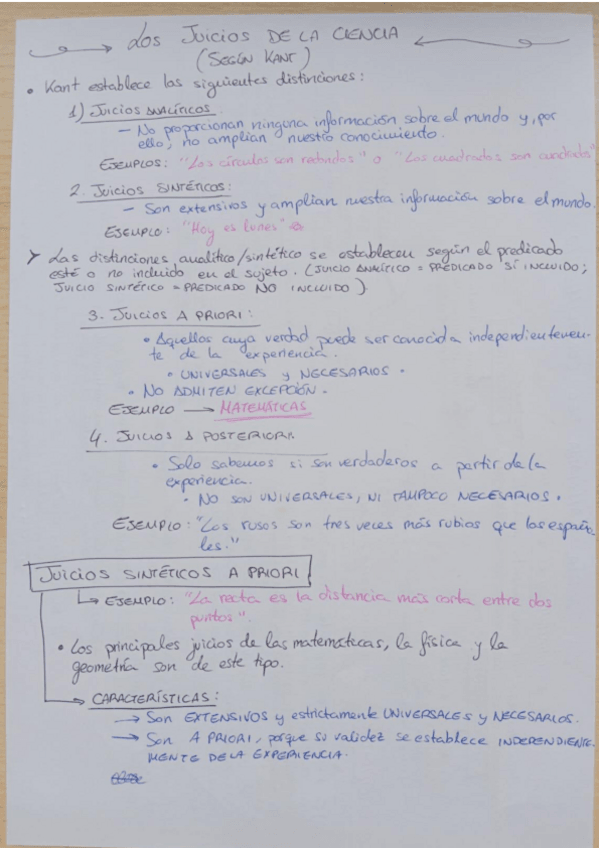 Los Juicios DE LA CIENCIA
(SEGÚN KANT)
• Kant establece las siguientes distinciones:
1) JUICIOS ANALÍTICOS
– No proporcionan ninguna información sobre el mundo y, por
ello, no amplian nuestro conocimiento.
EJEMPLOS: "Los círculos son redondos" o "Los cuadrados son cuadrados"
2. JUICIOS SINTÉTICOS:
– Son extensivos y amplian nuestra información sobre el mundo.
EJEMPLO: "Hoy es lunes"
➤ Las distinciones analítico/sintético se establecen según el predicado
esté o no incluido en el sujeto. (JUICIO ANALÍTICO = PREDICADO SÍ INCLUIDO;
JUICIO SINTÉTICO = PREDICADO NO INCLUIDO)
3. JUICIOS A PRIORI:
• Aquellos cuya verdad puede ser conocida independientemen-
te de la experiencia.
• UNIVERSALES y NECESARIOS.
• NO ADMITEN EXCEPCIÓN.
EJEMPLO → MATEMÁTICAS
4. JUICIOS A POSTERIORI.
• Solo sabemos si son verdaderos a partir de la
experiencia.
• NO SON UNIVERSALES, NI TAMPOCO NECESARIOS.
EJEMPLO: "Los rusos son tres veces más rubios que los españo
les."
JUICIOS SINTÉTICOS A PRIORI
↳ EJEMPLO: "La recta es la distancia más corta entre dos
puntos".
• Los principales juicios de las matemátcas, la física y la
geometría son de este tipo.
→ CARACTERÍSTICAS:
→ Son EXTENSIVOS y estrictamente UNIVERSALES y NECESARIOS.
→ Son A PRIORI, porque su validez se establece INDEPENDIENTE-
MENTE DE LA EXPERIENCIA.